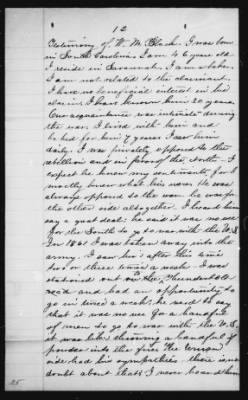 12
Testimony of W. M. Black. I was born
in South Carolina. I am 46 years old
I reside in Savannah. I am a baker.
I am not related to the claimant.
I have no beneficial interest in his
claim. I have known him 20 years.
Our acquaintance was intimate during
the war. I lived with him and
he had for him 7 years I saw him
daily. I was privately opposed to the
rebellion and in favor of the North. I
expect he knew my sentiments, for I
mostly knew what his were. He was
always opposed to the war. He was for
the other side altogether. I heard him
say a great deal: he said it was no use
for the South to go to war with the U.S.
In 1861 I was taken away into the
army. I saw him after this once
two or three times a week. I was
stationed out on the Thunderbolt
road and had an opportunity to
go in twice a week: he said to say
that it was no use for a handful
of men to go to war with the U.S.
it was like throwing a handful of
powder into the fire. The Union
side had his sympathies there is no
doubt about that. I never heard him
25